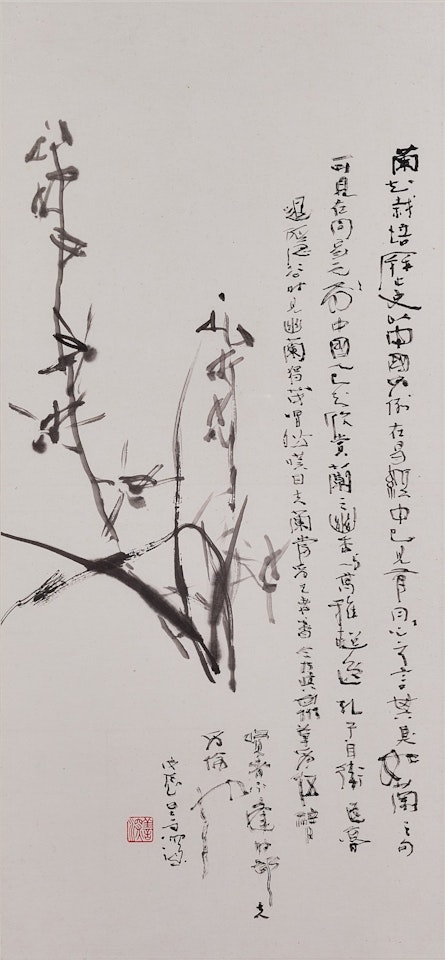 蘭之栽培歷史以中國为例在易經中已見有同心之言其臭如蘭之句
可見在周易之前中國人已知欣賞蘭之幽香与高雅超逸孔子自衛返魯
過隱谷時見幽蘭獨茂喟然嘆曰夫蘭當为王者香今與草为伍
賢者不逢时鄙夫
为倫也
戊辰